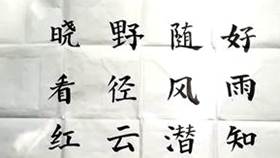 好雨知
随风潜
野径云
晓看红